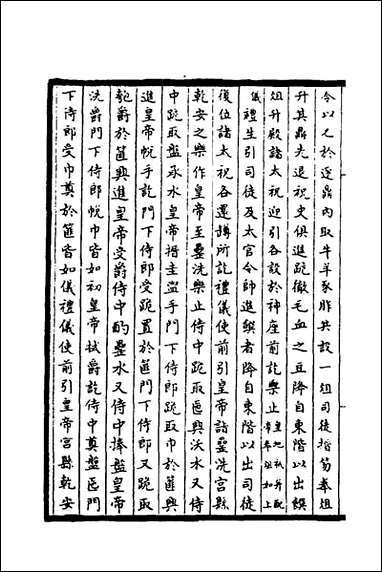 令以匕於逐鼎內取牛羊豕胙共設一俎司徒搢笏奉俎
升其鼎先退祝史俱進跪徹毛血之豆降自東階以出饌
俎升殿諸太祝迎引各設於神座前訖樂止皇地祇升配帝奉俎如上
儀禮生引司徒及太官令帥進饌者降自東階以出司徒
復位諸太祝各還罇所訖禮儀使前引皇帝詣罍洗宮縣
乾安之樂作皇帝至罍洗樂止侍中跪取匜興沃水又侍
中跪取盤承水皇帝搢圭盥手門下侍郎跪取巾於篚興
進皇帝帨手訖門下侍郎受跪置於篚門下侍郎又跪取
匏爵於篚興進皇帝受爵侍中酌罍水又侍中捧盤皇帝
洗爵門下侍郎帨巾皆如初皇帝拭爵訖侍中奠盤匜門
下侍郎受巾奠於篚皆如儀禮儀使前引皇帝宮縣乾安